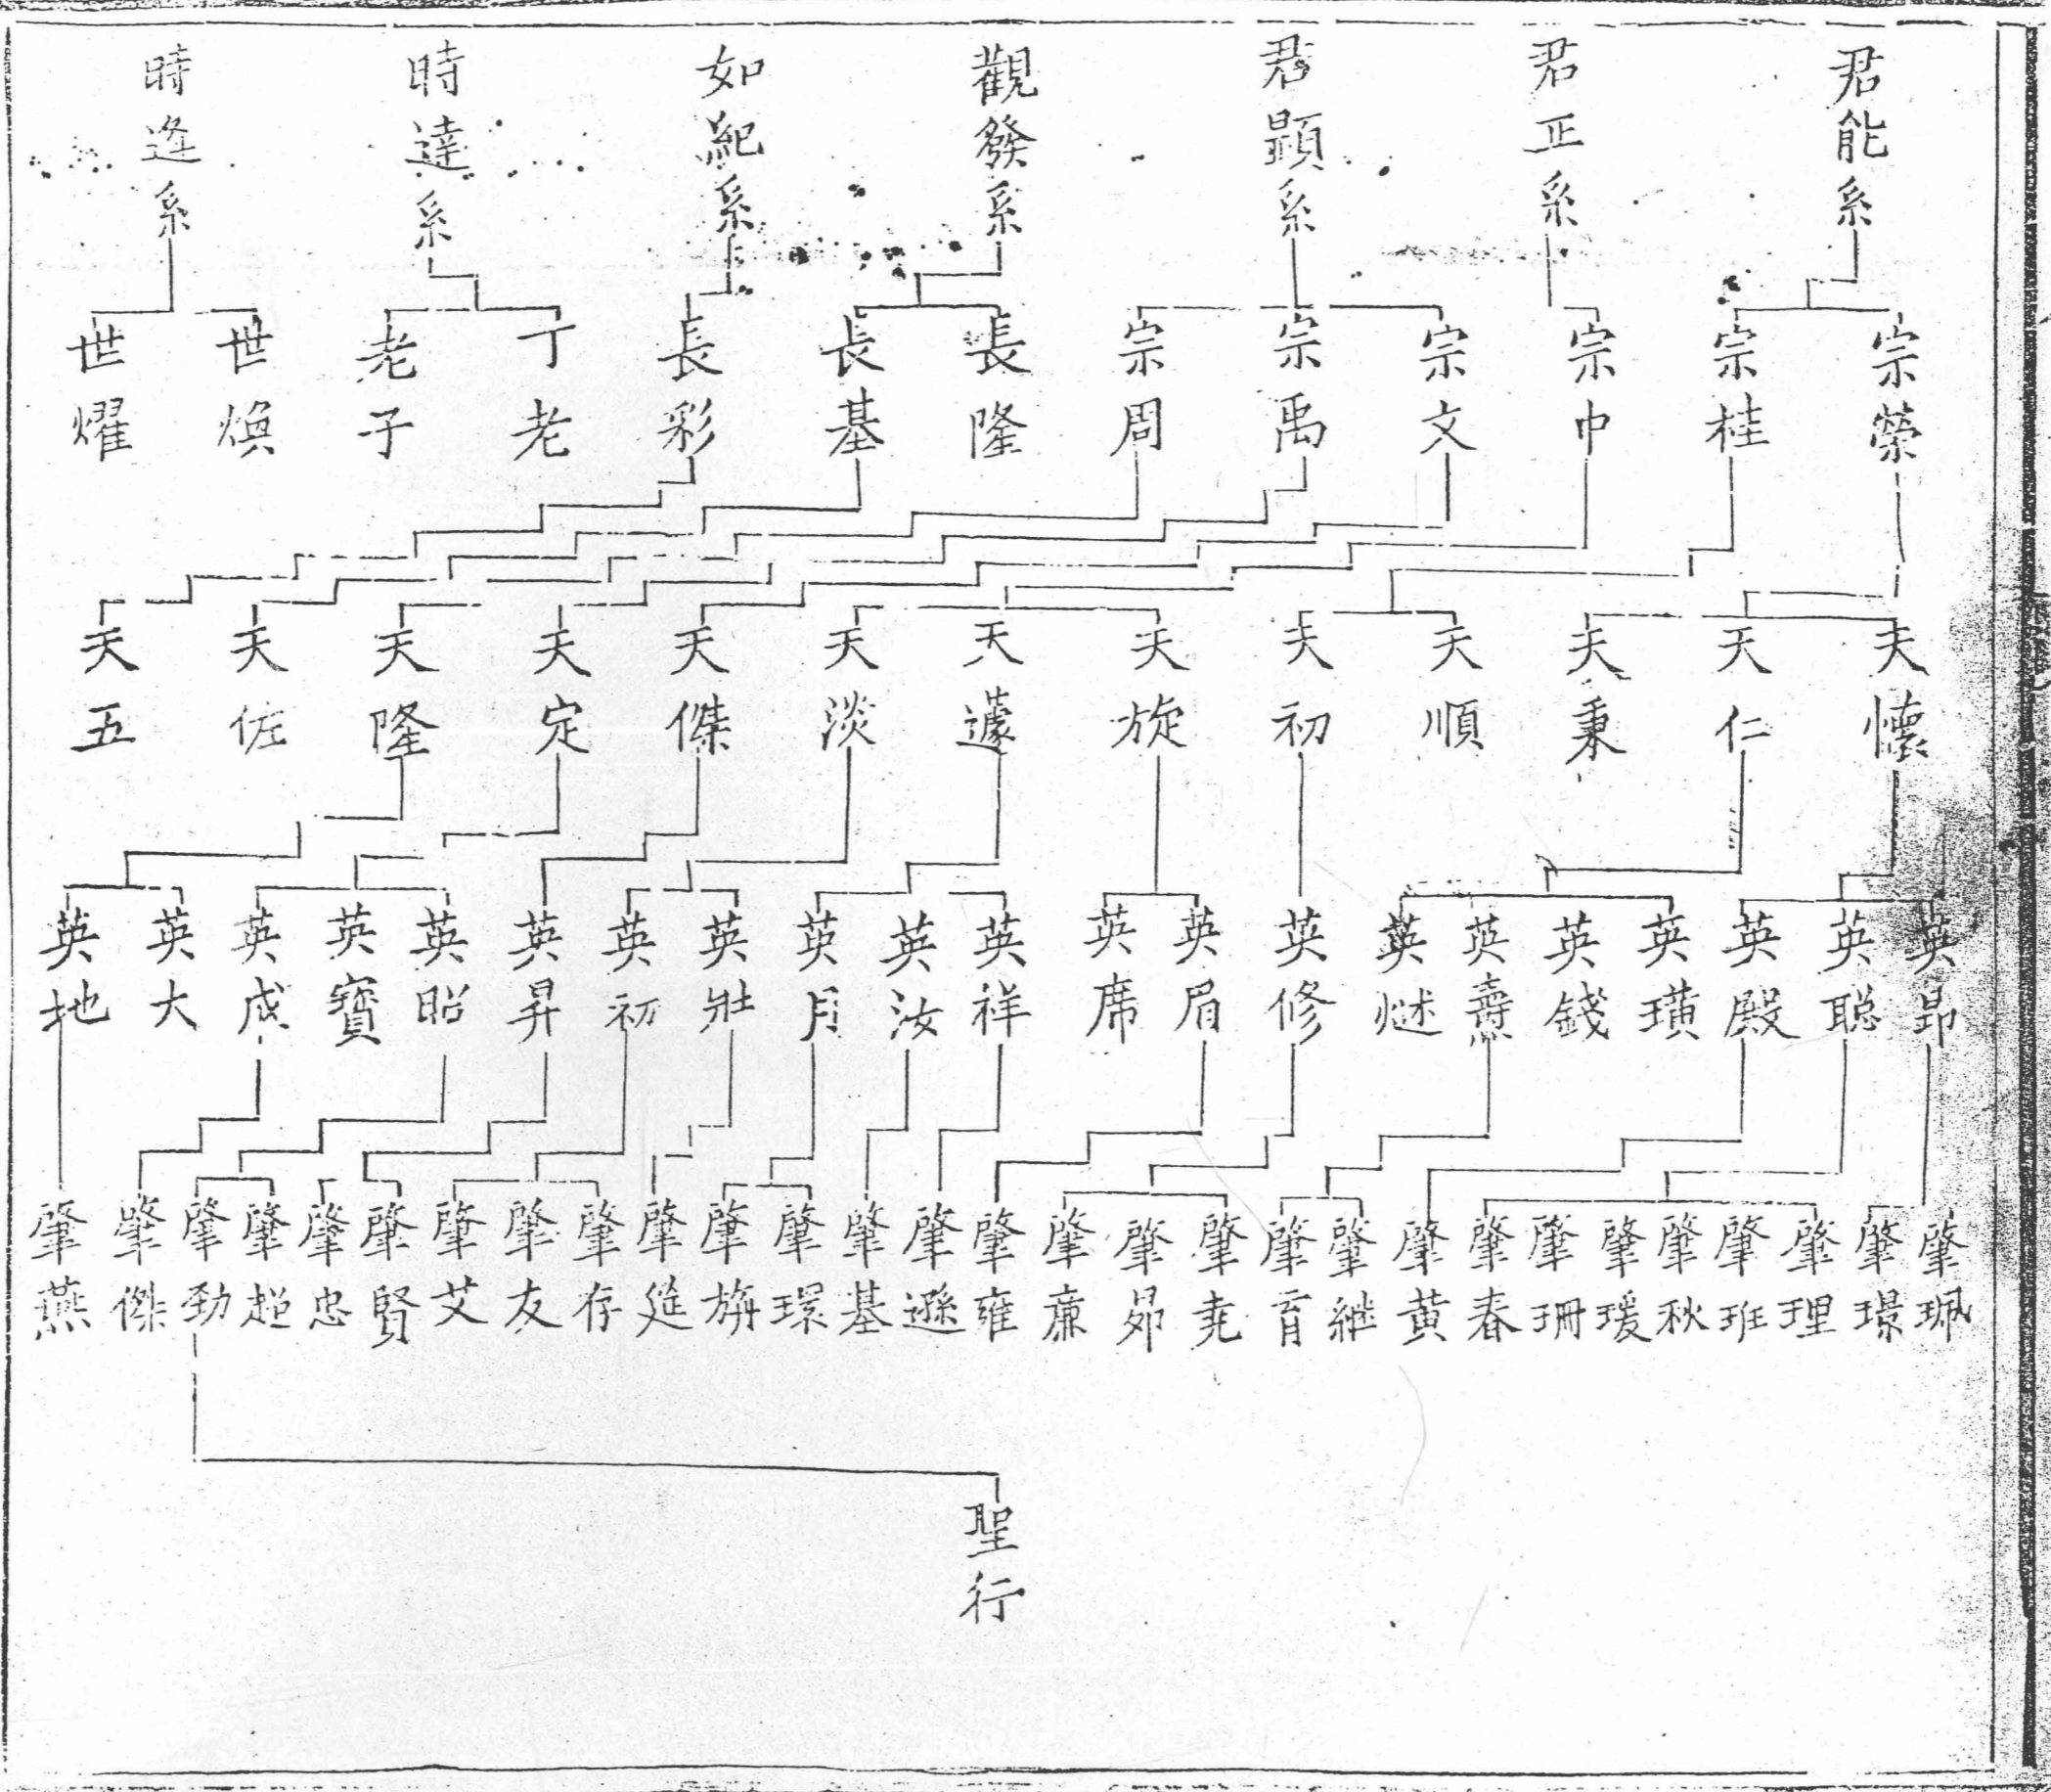 君能系
君正系
君顕系
觀發系
如紀系
時達系
時逢系
宗榮
宗桂
宗中
宗文
宗禹
宗周
長隆
長基
長彩
丁老
老子
世煥
世燿
天懷
天仁
天秉
天順
天初
天旋
天遽
天淡
天傑
天定
天隆
天佐
天五
英昴
英聡
英殿
英璜
英錢
英燾
英
英修
英眉
英席
英祥
英汝
英月
英壯
英初
英昇
英昭
英寳
英成
英大
英地
肇珮
肇璟
肇理
肇班
肇秋
肇瑗
肇珊
肇春
肇黄
肇継
肇育
肇尭
肇昴
肇廉
肇雍
肇遜
肇基
肇環
肇旃
肇筵
肇存
肇友
肇艾
肇賢
肇忠
肇超
肇勁
肇傑
肇燕
聖行